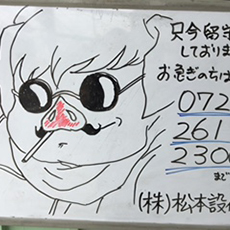 只今留守
しております
お急ぎのちは
072
261
230
まで
(株)松本設